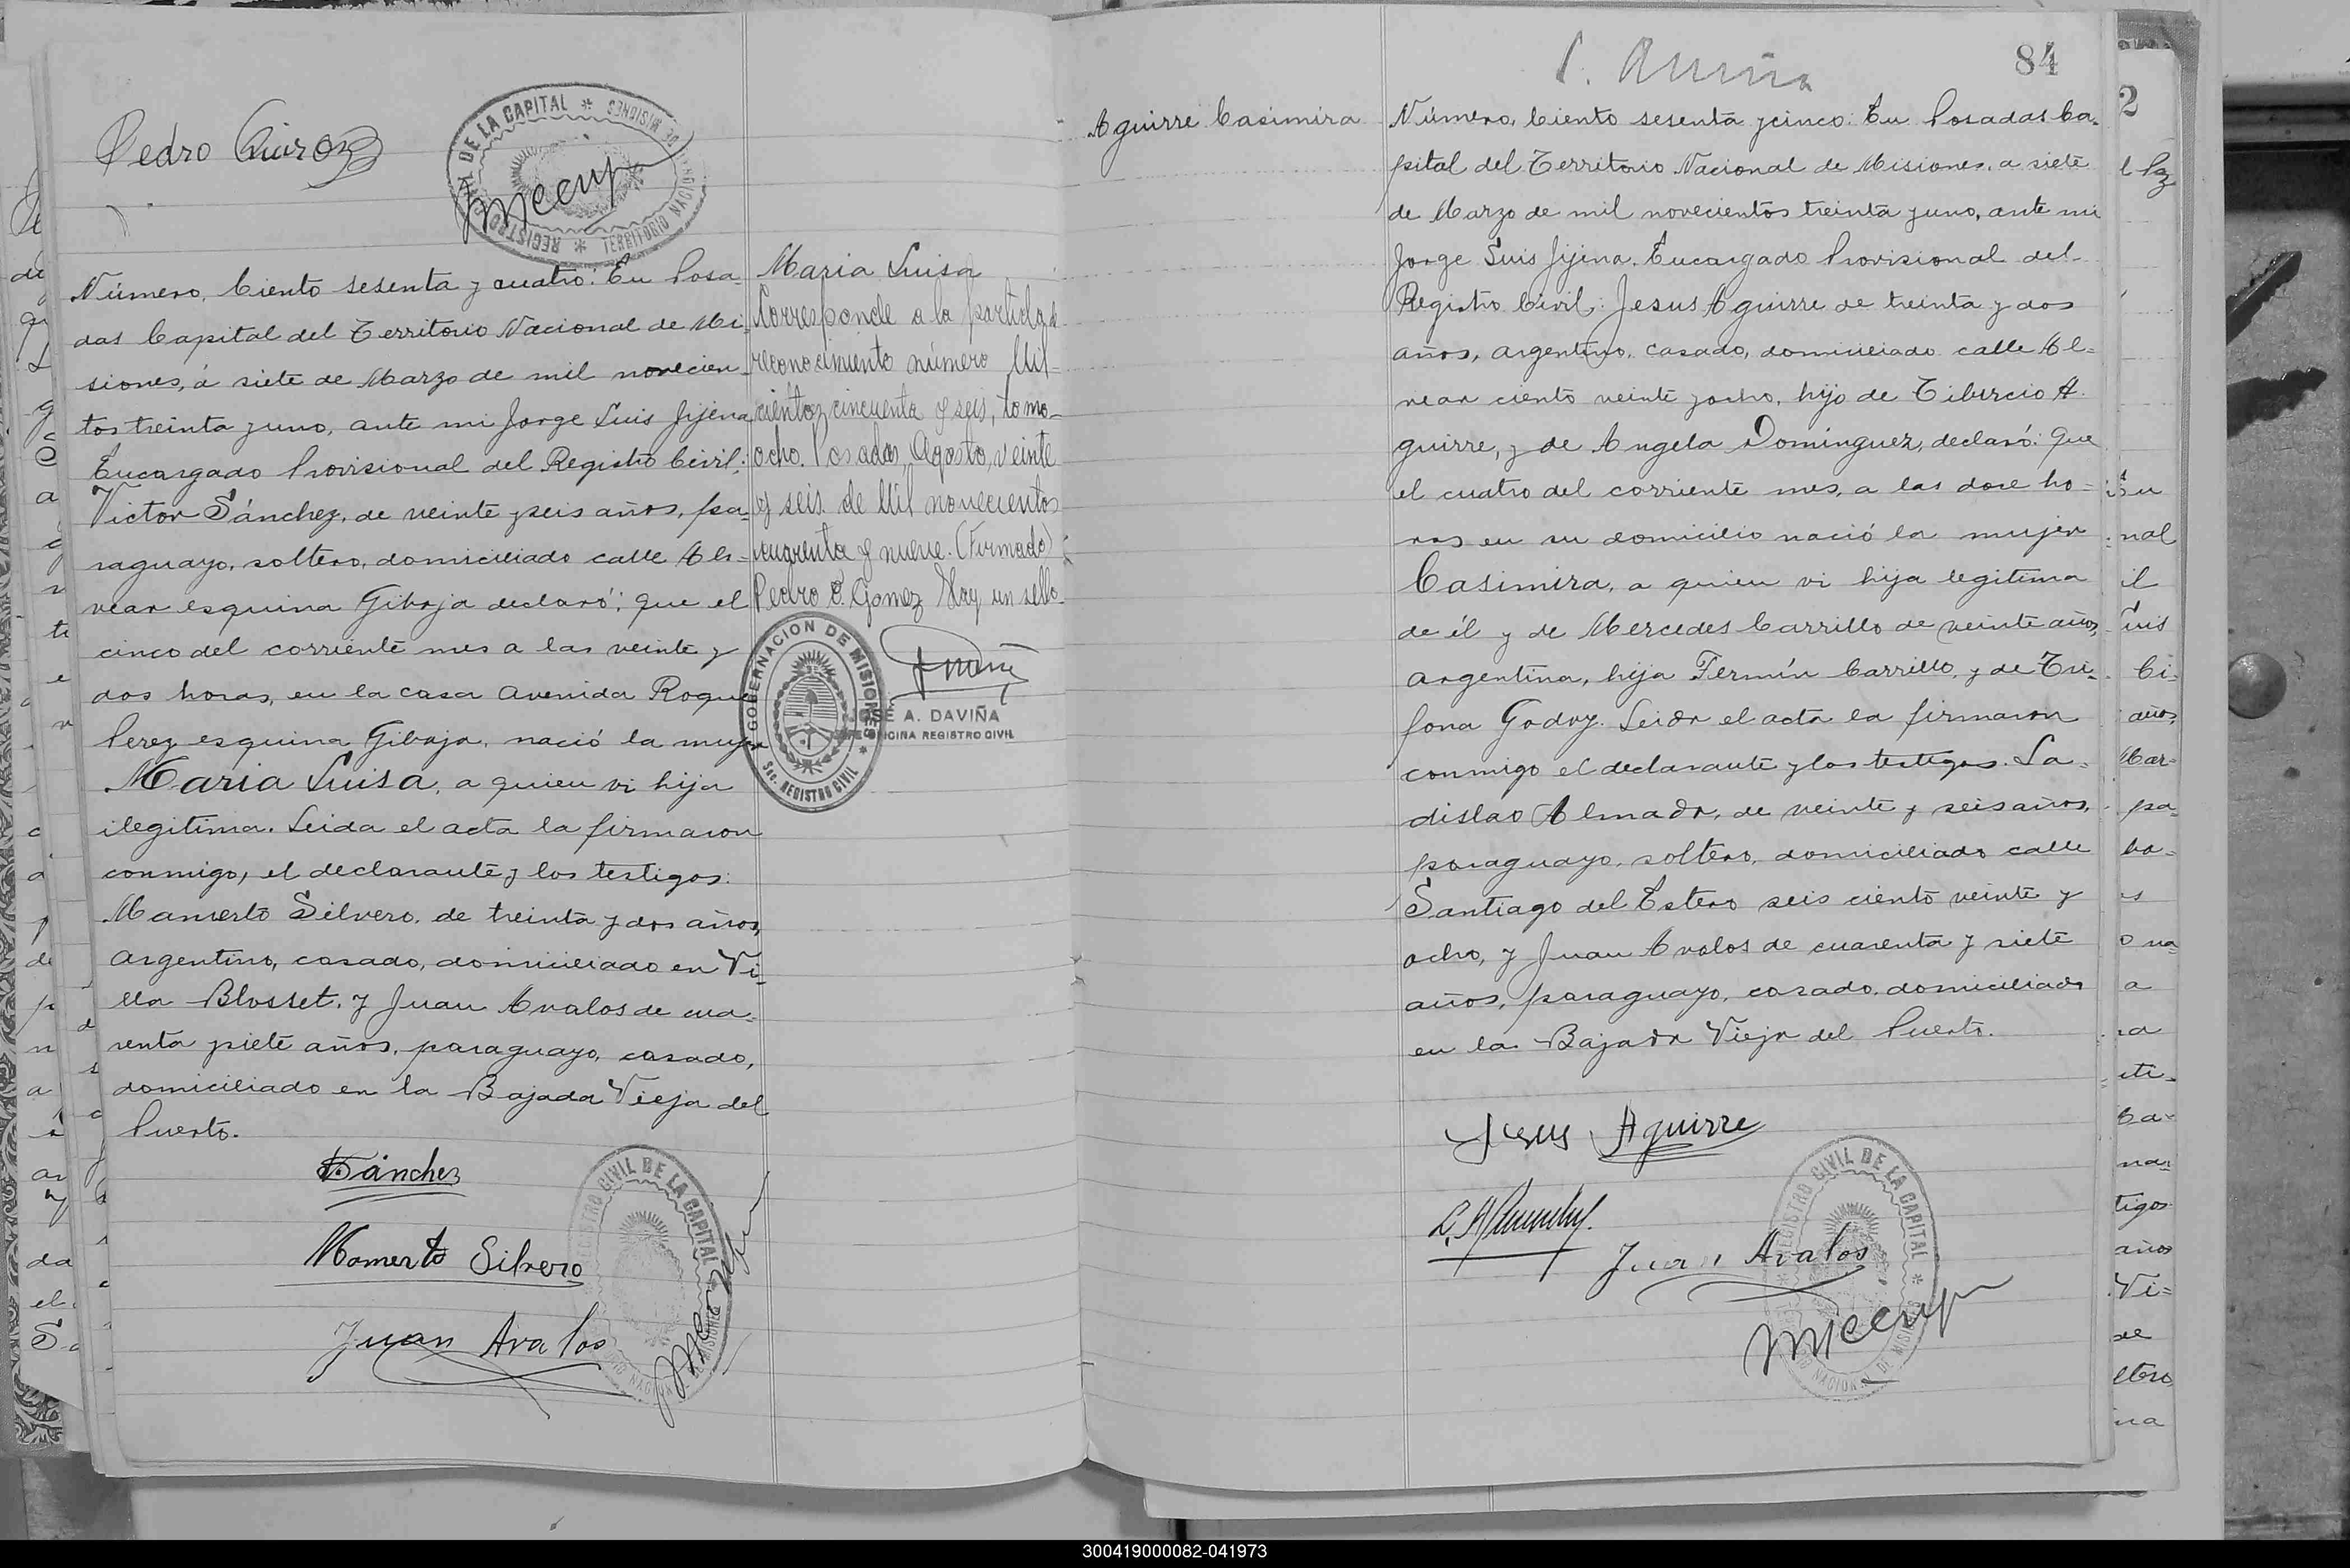 Pedro Quiroz
REGISTRO CIVIL DE LA CAPITAL * TERRITORIO NACIONAL DE MISIONES *
Número, Ciento sesenta y cuatro: En Posa-
das Capital del Territorio Nacional de Mi-
siones, á siete de Marzo de mil novecien-
tos treinta y uno, ante mi Jorge Luis Jijena
Encargado Provisional del Registro Civil;
Victor Sánchez, de veinte y seis años, pa-
raguayo, soltero, domiciliado calle Al-
vear esquina Gibaja declaró: que el
cinco del corriente mes a las veinte y
dos horas, en la casa Avenida Roque
Perez esquina Gibaja, nació la mujer
Maria Luisa, a quien vi hija
ilegitima. Leida el acta la firmaron
conmigo, el declarante y los testigos:
Mamerto Silvero, de treinta y dos años,
argentino, casado, domiciliado en Vi-
lla Blosset, y Juan Avalos de cua-
renta y siete años, paraguayo, casado,
domiciliado en la Bajada Vieja del
Puerto.
Sánchez
Mamerto Silvero
Juan Avalos
REGISTRO CIVIL DE LA CAPITAL
Maria Luisa
Corresponde a la partida de
reconocimiento número Mil
ciento cincuenta y seis, tomo
ocho. Posadas, Agosto, veinte
y seis de Mil novecientos
cuarenta y nueve. (Firmado)
Pedro O. Gomez Hay un sello
GOBERNACION DE MISIONES
Sec. REGISTRO CIVIL
JOSE A. DAVIÑA
JEFE OFICINA REGISTRO CIVIL
84
Aguirre Casimira
Número, Ciento sesenta y cinco: En Posadas Ca-
pital del Territorio Nacional de Misiones, a siete
de Marzo de mil novecientos treinta y uno, ante mi
Jorge Luis Jijena, Encargado Provisional del
Registro Civil; Jesus Aguirre de treinta y dos
años, argentino, casado, domiciliado calle Al-
vear ciento veinte y ocho, hijo de Tiburcio A-
guirre, y de Angela Dominguez, declaró: que
el cuatro del corriente mes, a las doce ho-
ras en su domicilio nació la mujer
Casimira, a quien vi hija legitima
de él y de Mercedes Carrillo de veinte años,
argentina, hija Fermín Carrillo, y de Tri-
fona Godoy. Leida el acta la firmaron
conmigo el declarante y los testigos. La-
dislao Almada, de veinte y seis años,
paraguayo, soltero, domiciliado calle
Santiago del Estero seis ciento veinte y
ocho, y Juan Avalos de cuarenta y siete
años, paraguayo, casado, domiciliado
en la Bajada Vieja del Puerto.
Jesus Aguirre
Juan Avalos
REGISTRO CIVIL DE LA CAPITAL *
300419000082-041973